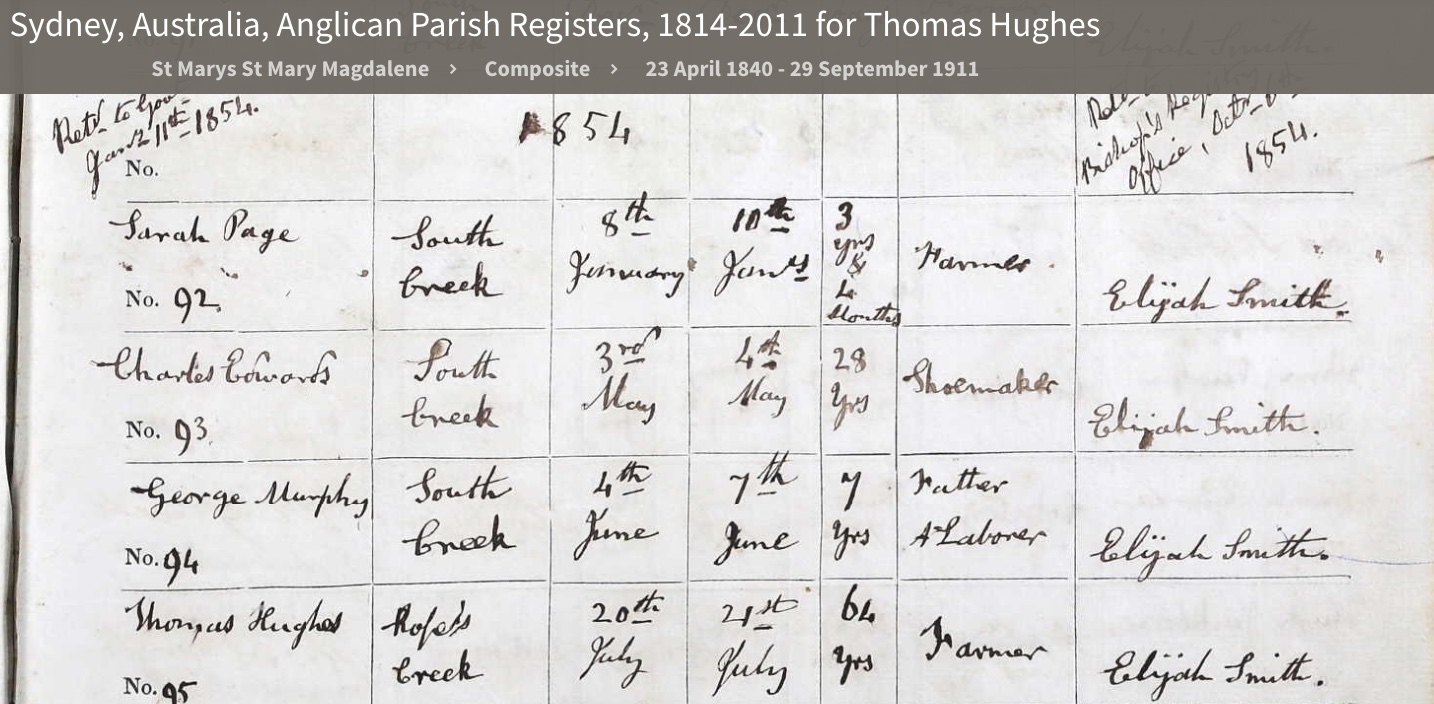 Sydney, Australia, Anglican Parish Registers, 1814-2011 for Thomas Hughes
St Marys St Mary Magdalene > Composite > 23 April 1840 - 29 September 1911
Retd. to Gov
Jany 11th 1854.
No.
1854
Bishop's
Office, Octr. 6th
1854.
Sarah Page
No. 92.
South
Creek
8th
January
10th
Jany
3
yrs
&
4
Months
Farmer
Elijah Smith.
Charles Edwards
No. 93.
South
Creek
3rd
May
4th
May
28
Yrs
Shoemaker
Elijah Smith.
George Murphy
No. 94
South
Creek
4th
June
7th
June
7
Yrs
Father
A Laborer
Elijah Smith.
Thomas Hughes
No. 95
Rope's
Creek
20th
July
21st
July
64
Yrs
Farmer
Elijah Smith.